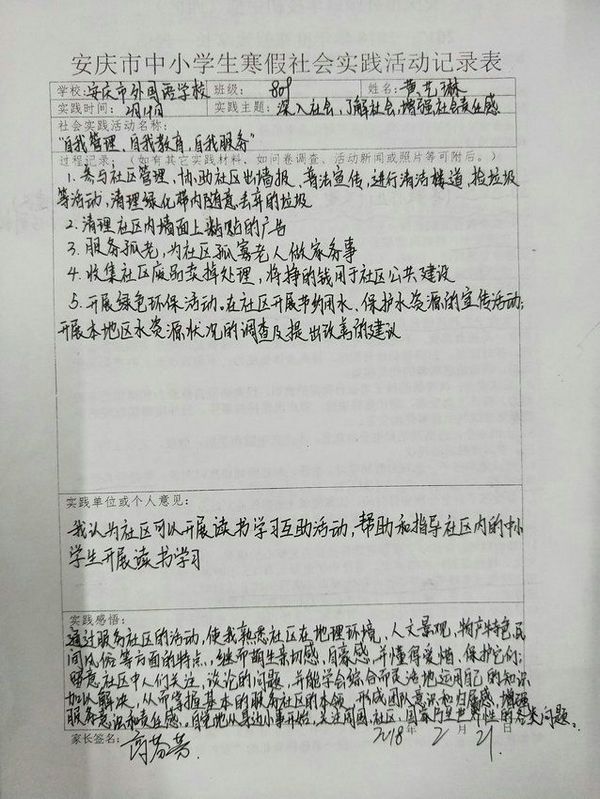 安庆市中小学生寒假社会实践活动记录表
学校: 安庆市外国语学校 班级: 809 姓名: 黄 琳
实践时间: 2月19日 实践主题: 深入社会,了解社会,增强社会责任感
社会实践活动名称:
“自我管理、自我教育,自我服务”
过程记录:(如有其它实践材料,如问卷调查、活动新闻或照片等可附后。)
1. 参与社区管理,协助社区出墙报、普法宣传,进行清洁楼道,捡垃圾
等活动,清理绿化带内随意丢弃的垃圾
2. 清理社区内墙面上粘贴的广告
3. 服务孤老,为社区孤寡老人做家务事
4. 收集社区废品卖掉处理,将挣的钱用于社区公共建设
5. 开展绿色环保活动。在社区开展节约用水、保护水资源的宣传活动;
开展本地区水资源状况的调查及提出改善的建议
实践单位或个人意见:
我认为社区可以开展读书学习互助活动,帮助和指导社区内的中小
学生开展读书学习
实践感悟:
通过服务社区的活动,使我熟悉社区在地理环境、人文景观、物产特色、民
间风俗等方面的特点,继而萌生亲切感,自豪感,并懂得爱惜、保护它们;
愿意社区中人们关注、谈论的问题,并能学会综合而灵活地运用自己的知识
加以解决,从而掌握基本的服务社区的本领,形成团队意识和归属感,增强
服务意识和责任感。自觉地从身边小事开始,关注周围,社区,国家乃至世界性的各类问题。
家长签名: 2018年 2月 21日